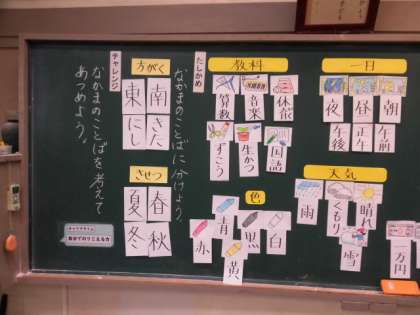 たしかめ
なかまのことばに分けよう。
教科
算数
音楽
体育
ずこう
生かつ
国語
一日
夜
昼
朝
午後
正午
午前
色
赤
青
黄
黒
白
天気
雨
くもり
雪
晴れ
一万円
チャレンジ
なかまのことばを考えて
あつめよう。
方がく
東
南
にし
きた
きせつ
夏
春
冬
秋